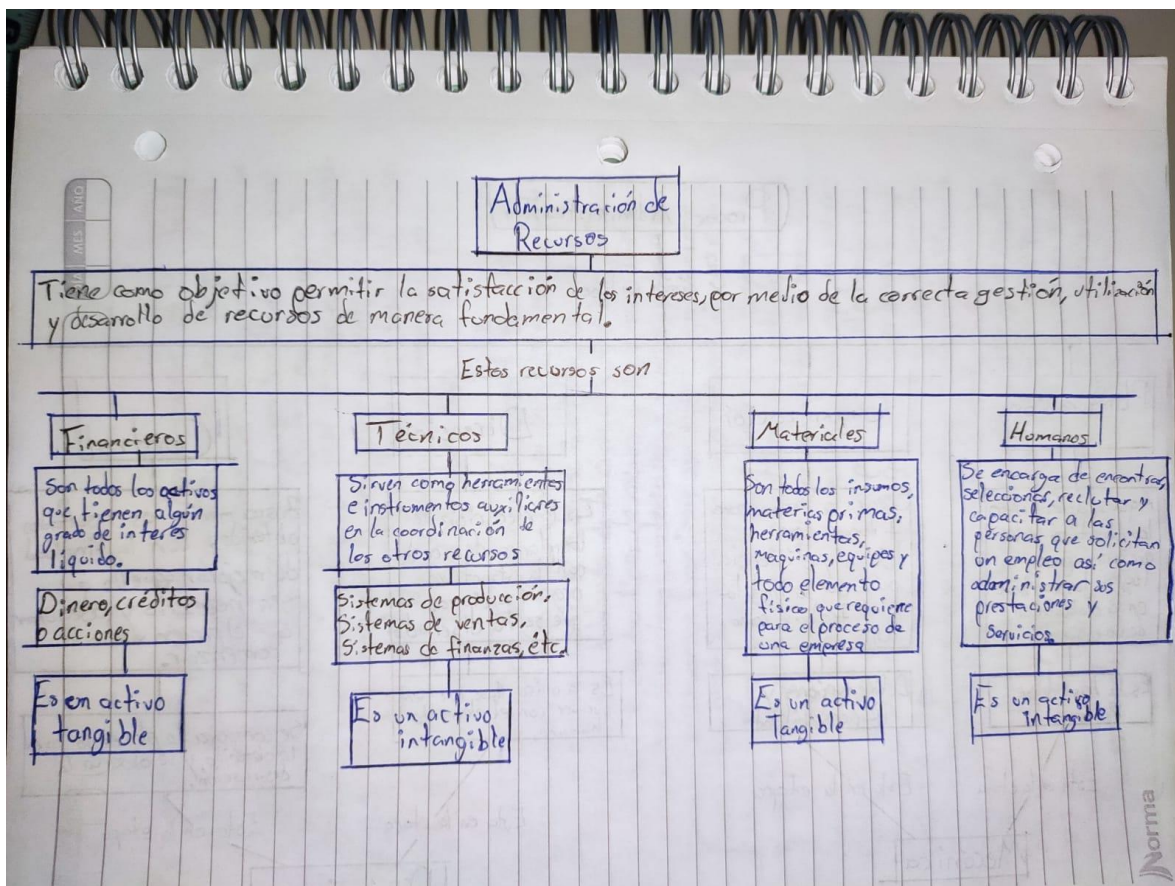 MES AÑO
Administración de
Recursos
Tiene como objetivo permitir la satisfacción de los intereses, por medio de la correcta gestión, utilización
y desarrollo de recursos de manera fundamental.
Estos recursos son
Financieros
Son todos los activos
que tienen algún
grado de interés
líquido.
Dinero, créditos
o acciones
Es en activo
tangible
Técnicos
Sirven como herramientas
e instrumentos auxiliares
en la coordinación de
los otros recursos
Sistemas de producción,
Sistemas de ventas,
Sistemas de finanzas, étc.
Es un activo
intangible
Materiales
Son todos los insumos,
materias primas,
herramientas,
maquinas, equipos y
todo elemento
físico que requiene
para el proceso de
una empresa
Es un activo
Tangible
Humanos
Se encarga de encontrar,
seleccionar, reclutar y
capacitar a las
personas que solicitan
un empleo así como
administrar sus
prestaciones y
Servicios.
Es un activo
Intangible
Norma